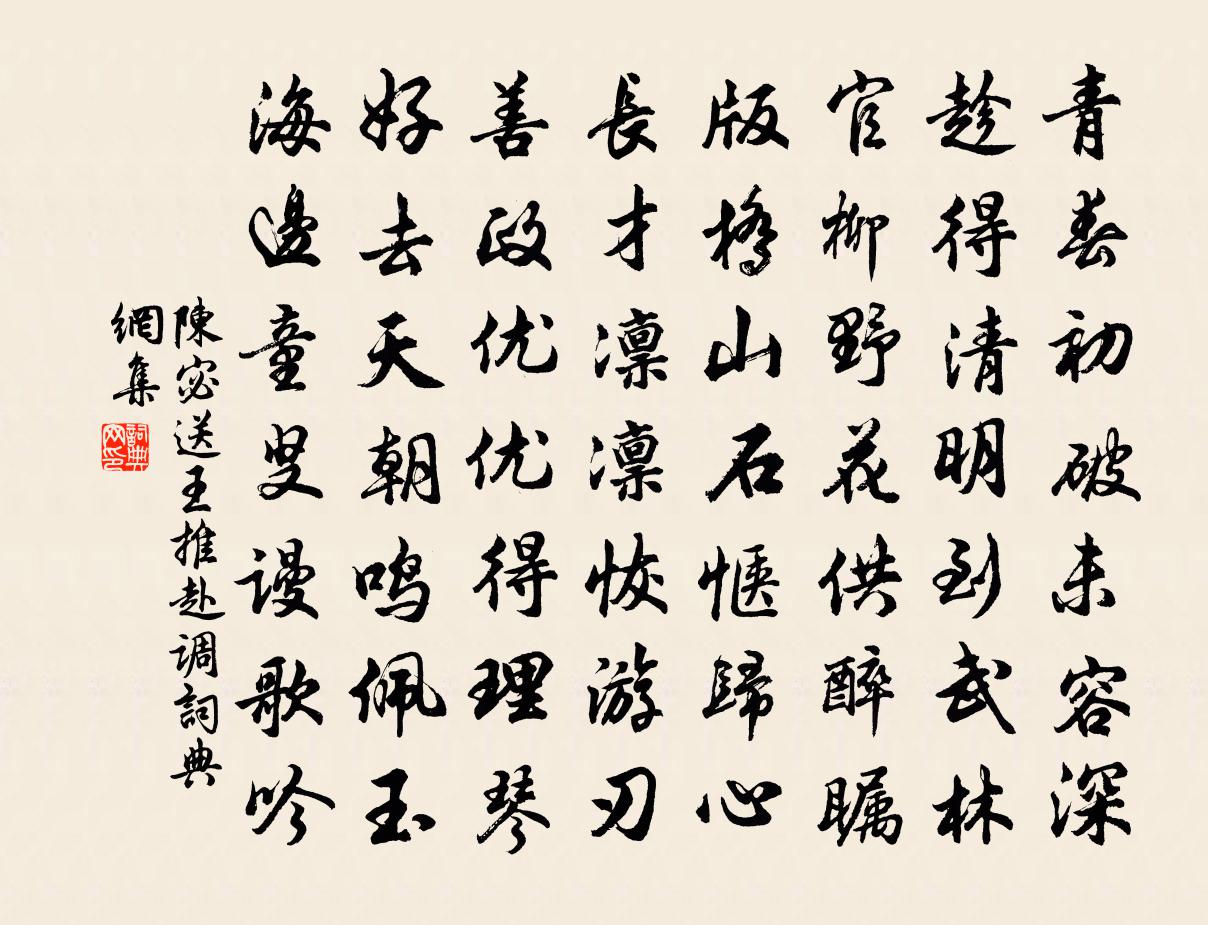 青春初破未容深
趁得清明到武林
官柳野花供醉瞩
版桥山石惬歸心
長才凛凛恢游刃
善政优优得理琴
好去天朝鸣佩玉
海邊童叟谩歌吟
陳宓送王推赴调詞典
網集
詞典
网印